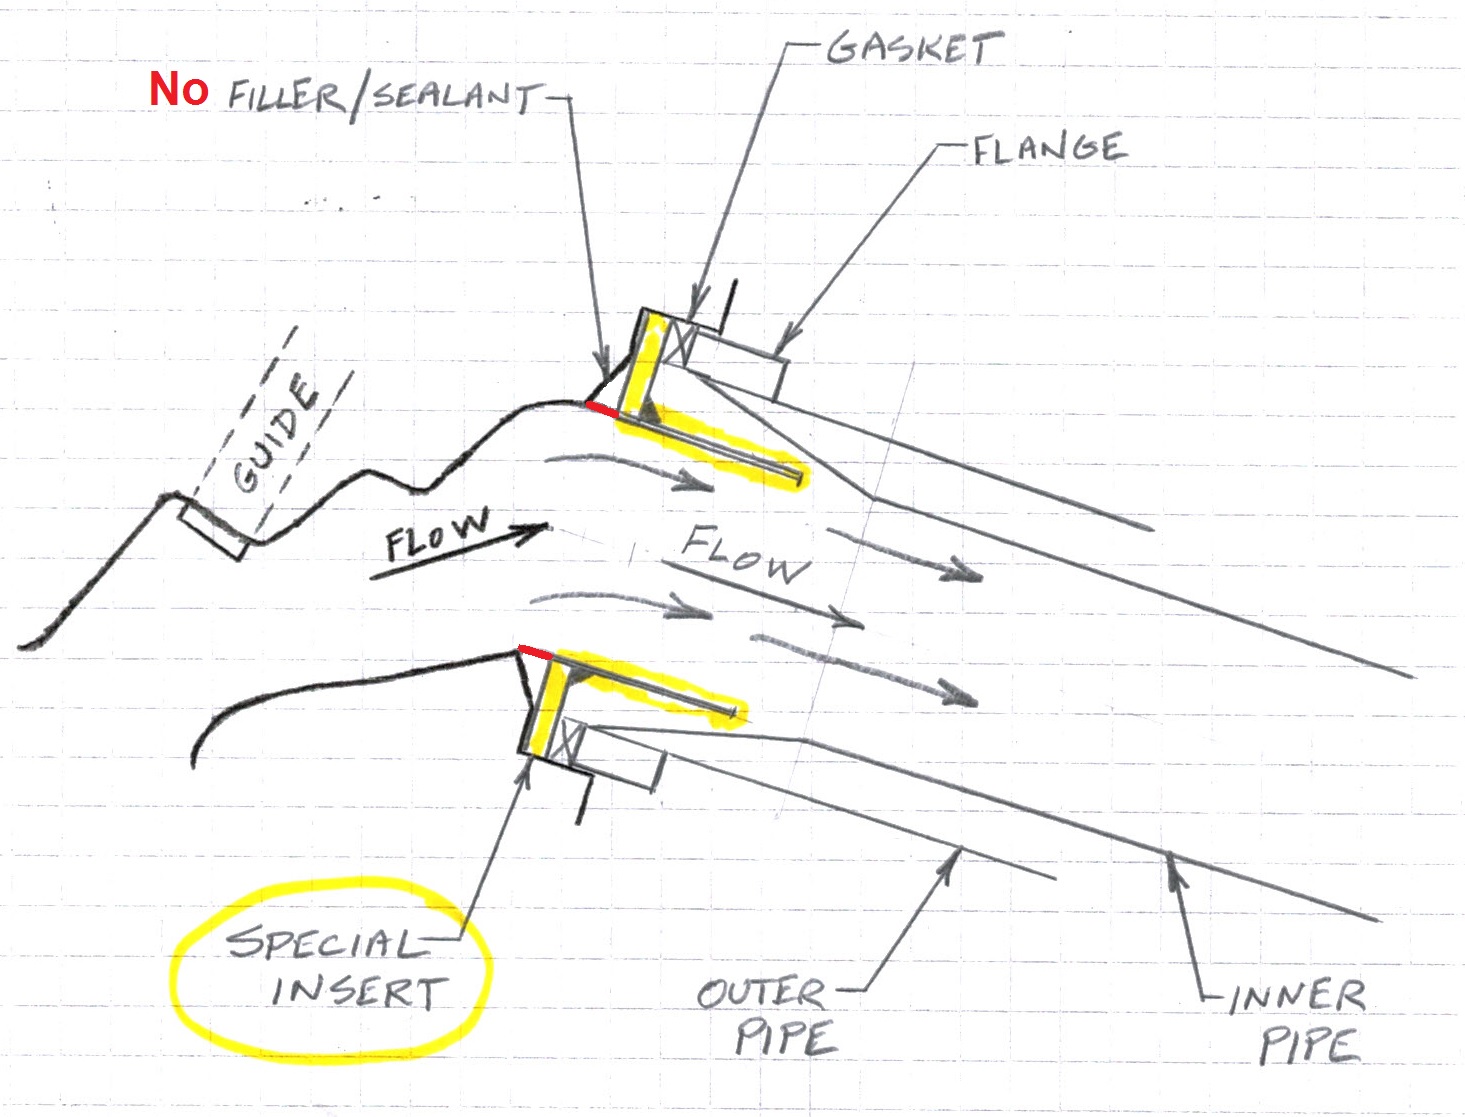 GASKET
No FILLER/SEALANT
FLANGE
GUIDE
FLOW
FLOW
SPECIAL
INSERT
OUTER
PIPE
INNER
PIPE